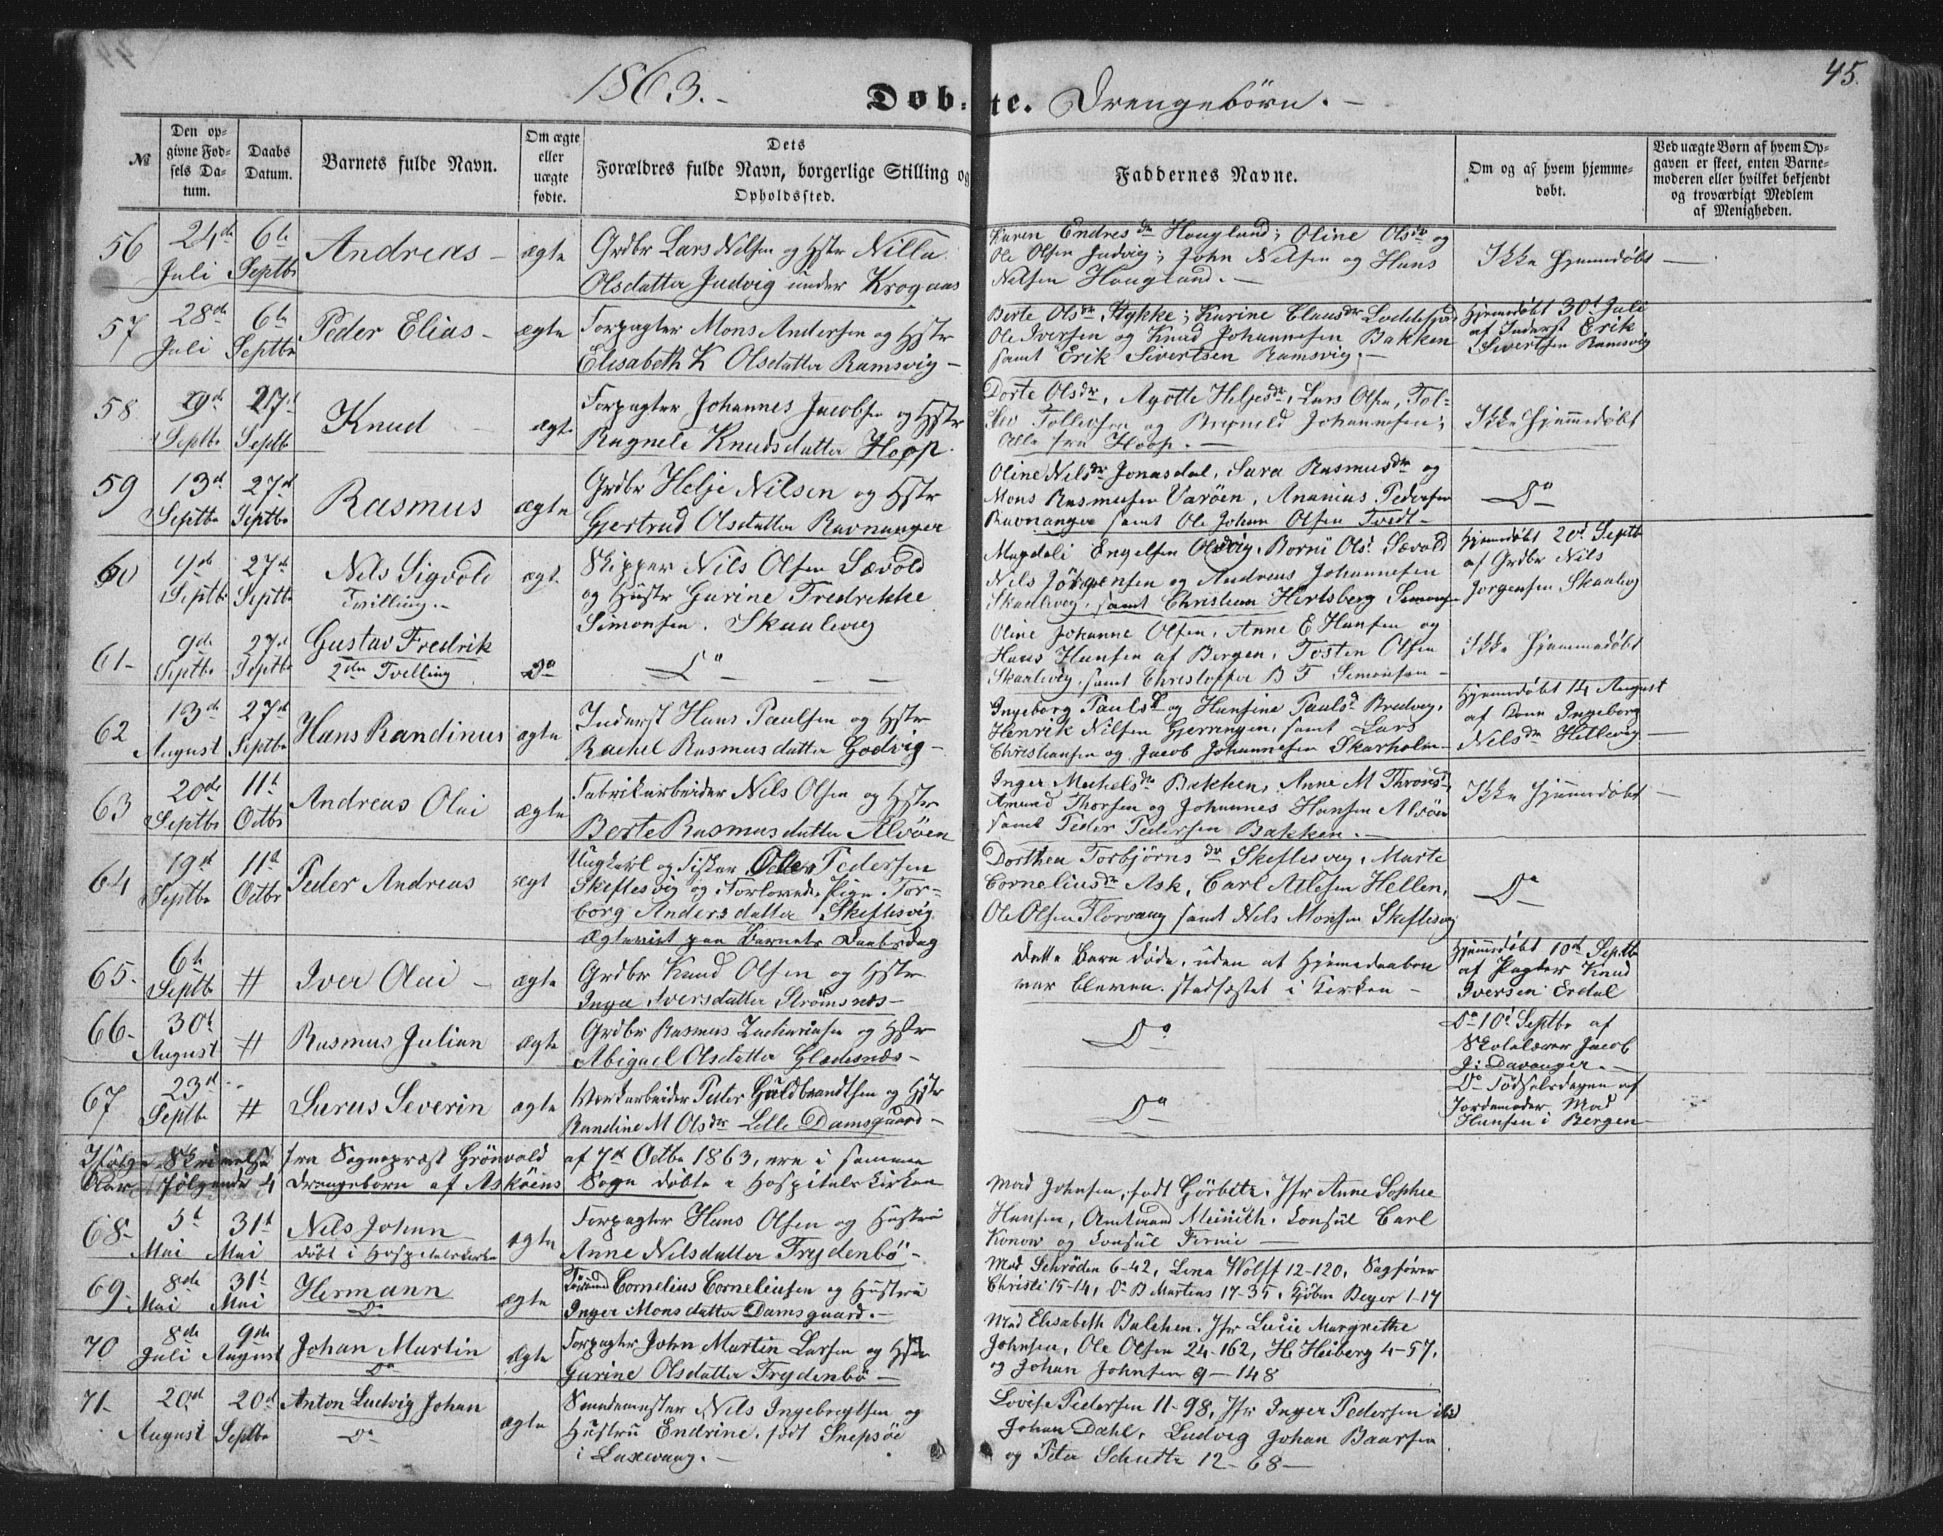 1863.-
Døb-te. Drengebørn.-
45.
№
Den op-
givne Fød-
sels Da-
tum.
Daabs
Datum.
Barnets fulde Navn.
Om ægte
eller
uægte
fødte.
Dets
Forældres fulde Navn, borgerlige Stilling og
Opholdssted.
Faddernes Navne.
Om og af hvem hjemme-
døbt.
Ved uægte Børn af hvem Op-
gaven er skeet, enten Barne-
moderen eller hvilket bekjendt
og troværdigt Medlem
af Menigheden.
56 24de Juli 6te Septbr Andreas - ægte
Grdbr Lars Nilsen og Hstr Nilla
Olsdatter Judvig under Krogaas
Karen Endresdr Hougland; Oline Olsdr og
Ole Olsen Judvig; John Nilsen og Hans
Nilsen Hougland.-
Ikke Hjemmedøbt -
57 28de Juli 6te Septbr Peder Elias - ægte
Forpagter Mons Andersen og Hstr
Elisabeth K Olsdatter Ramsvig -
Berte Olsdr Stykke; Karine Clausdr Loddefjord,
Ole Iversen og Knud Johannesen Bakken
samt Erik Sivertsen Ramsvig.-
Hjemmedøbt 30t Juli
af Inderst Erik
Sivertsen Ramsvig
58 Septbr 27d Septbr Knud - ægte
Forpagter Johannes Jacobsen og Hstr
Ragnele Knudsdatter Hoop.
Dorte Olsdr, Agotte Heljesdr, Lars Olsen, Tol-
lev Tollevsen og Brynild Johannesen;
Alle fra Hoop.-
Ikke Hjemmedøbt
59 13d Septbr 27d Septbr Rasmus ægte
Grdbr Helje Nilsen og Hstr
Gjertrud Olsdatter Ravnanger
Oline Nilsdr Jonasdal, Sara Rasmusdr og
Mons Rasmusen Varøen, Ananias Pedersen
Ravnanger samt Ole Johan Olsen Tvedt -
Do
60 9de Septbr 27d Septbr Nils Sigvold
Tvilling.- ægte
Skipper Nils Olsen Sævold
og Hustr Gurine Fredrikke
Simonsen. Skaalevig
Magdeli Engelsen Olsvig, Borni Olsd Sævold
Nils Jörgensen og Andreas Johannesen
Skaalevig, samt Christian Hertsberg Simonsen
Hjemmedøbt 20d Septb
af Grdbr Nils
Jørgensen Skaalevig
61- 9de Septbr 27d Septbr Gustav Fredrik
2den Tvilling Do
Do - -
Oline Johanne Olsen, Anne E Hansen og
Hans Hansen af Bergen, Tosten Olsen
Skaalevig, samt Christoffer B F Simonsen -
Ikke Hjemmedøbt
62 13d August 27d Septbr Hans Randinus ægte
Inderst Hans Paulsen og Hstr
Rachel Rasmusdatter Godvig -
Ingeborg Paulsd og Hansine Paulsd Bredvig,
Henrik Nilsen Gjerringen, samt Lars
Christiansen og Jacob Johannesen Skarholm -
Hjemmedøbt 14 August
af Kone Ingeborg
Nilsdr Hetlevig -
63 20de Septbr 11t Octbr Andreas Olai ægte
Fabrikarbeider Nils Olsen og Hstr
Berte Rasmusdatter Alvøen
Inger Michelsdr Bakken, Anne M Thronsd,
Amund Thorsen og Johannes Hansen Alvøen
samt Peder Pedersen Bakken.-
Ikke Hjemmedøbt -
64 19d Septbr 11te Octbr Peder Andreas ægt
Ungkarl og Fisker Ole Pedersen
Skeflesvig og Forlovede Pige Tor-
borg Andersdatter Skeflesvig.
Ægteviet paa Barnets Daabsdag
Dorthea Torbjørnsdr Skeflesvig, Marte
Corneliusdr Ask, Carl Atlesen Hellen,
Ole Olsen Florvaag samt Nils Monsen Skeflesvig
Do
65- 6te Septbr # Iver Olai - ægte
Grdbr Knud Olsen og Hstr
Inga Iversdatter Strømsnes -
Dette Barn døde, uden at Hjemmedaaben
var bleven stadfæstet i Kirken -
Hjemmedøbt 10de Septbr
af Pagter Knud
Iversen Erdal
66- 30t August # Rasmus Julian ægte
Grdbr Rasmus Zachariasen og Hstr
Abigael Olsdatter Gladesnes -
Do
Do 10d Septbr af
Skolelærer Jacob
J: Davanger.-
67 23d Septbr # Surus Severin ægte
Værkarbeider Peter Guldbrandtsen og Hstr
Randine M Olsdr Lille Damsgaard -
Do
Do Fødselsdagen af
Jordemoder Mad
Hansen i Bergen
Ifølge Skrivelse fra Sognepræst Grönvold af 7de Octbr 1863, ere i samme
Aar følgende 4 Drengebørn af Askøens Sogn døbte i Hospitalskirken
68- 5t Mai 31t Mai Nils Johan
døbt i Hospitalskirke ægte
Forpagter Hans Olsen og Hustru
Anne Nilsdatter Frydenbö -
Mad Johnsen, født Görbitz, Jfr Anne Sophie
Hansen, Amtmand Meinich, Konsul Carl
Konow og Konsul Fernie -
69- 8de Mai 31t Mai Hermann
Do ægte
Cornelius Corneliusen og Hustru
Inger Monsdatter Damsgaard.-
Mad Schrøden 6-42, Lena Wolff 12-120, Sagfører
Christi 15-14, Do B Martens 17-35, Kjøbm Beyer 1-17
70 8de Juli 9de August Johan Martin
Do ægte
Forpagter John Martin Larsen og Hstr
Gurine Olsdatter Frydenbö -
Mad Elisabeth Balchen, Jfr Lucie Margrethe
Johnsen, Ole Olsen 24-162, H Heiberg 4-57,
og Johan Johnsen 9-148
71- 20de August 20d Septbr Anton Ludvig Johan
Do ægte
Nils Ingebregtsen og
Hustru Endrine, født Snepsöe
i Laxevaag.-
Lovise Pedersen 11-98, Jfr Inger Pedersen ibd
Johan Dahl, Ludvig Johan Baarsen
og Peter Schutte 12-68-